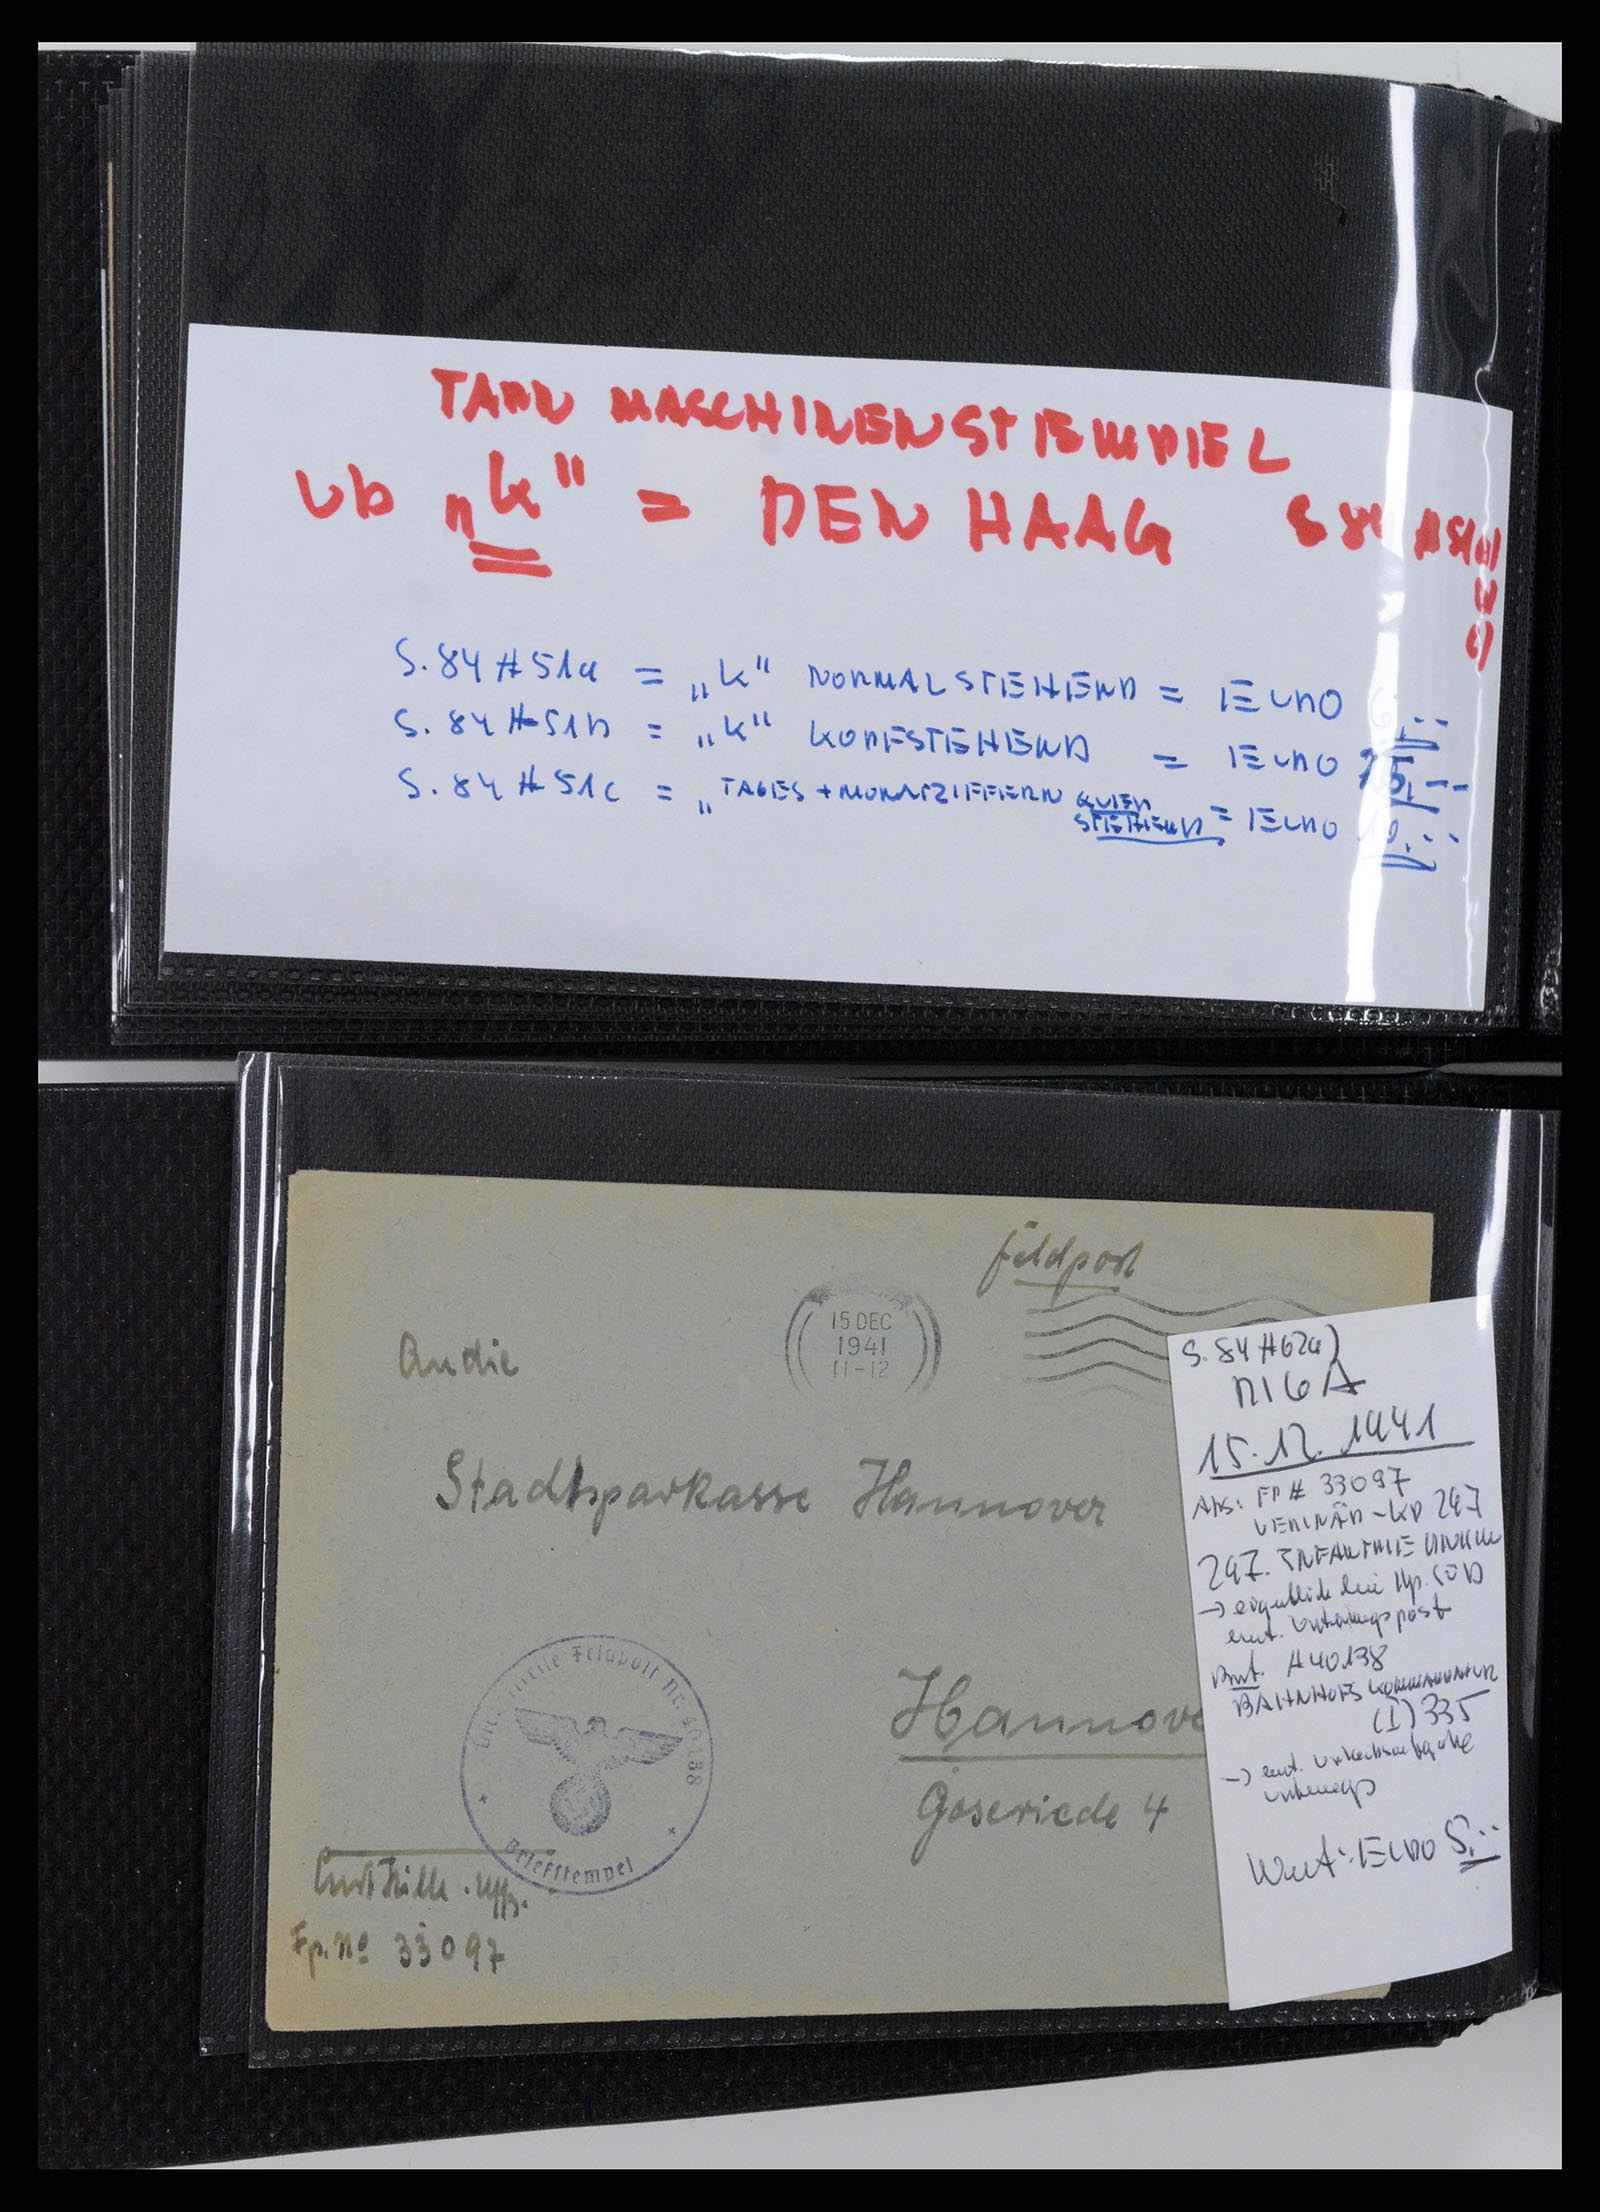 TARN MASCHINENSTEMPEL
UB „k" = DEN HAAG S 84 #51a)
b)
c)
S. 84 #51a = „k" NORMALSTEHEND = EURO 6,--
S. 84 #51b = „k" KOPFSTEHEND = EURO 25,--
S. 84 #51c = „TAGES + MONATZIFFERN QUER
STEHEND = EURO 10,--
Feldpost
15 DEC
1941
11-12
An die
Stadtsparkasse Hannover
Hannove
Goseriede 4
Feldpost Nr. 40138
Briefstempel
Uffz.
Fp. No 33097
S. 84 #62a)
RIGA
15.12.1941
Abs: FP# 33097
VETERINÄR-KP 247
247. INFANTERIE
#40138
BAHNHOFSKOMMANDANTUR
(I) 335
unterwegs
Wert: EURO 5,--